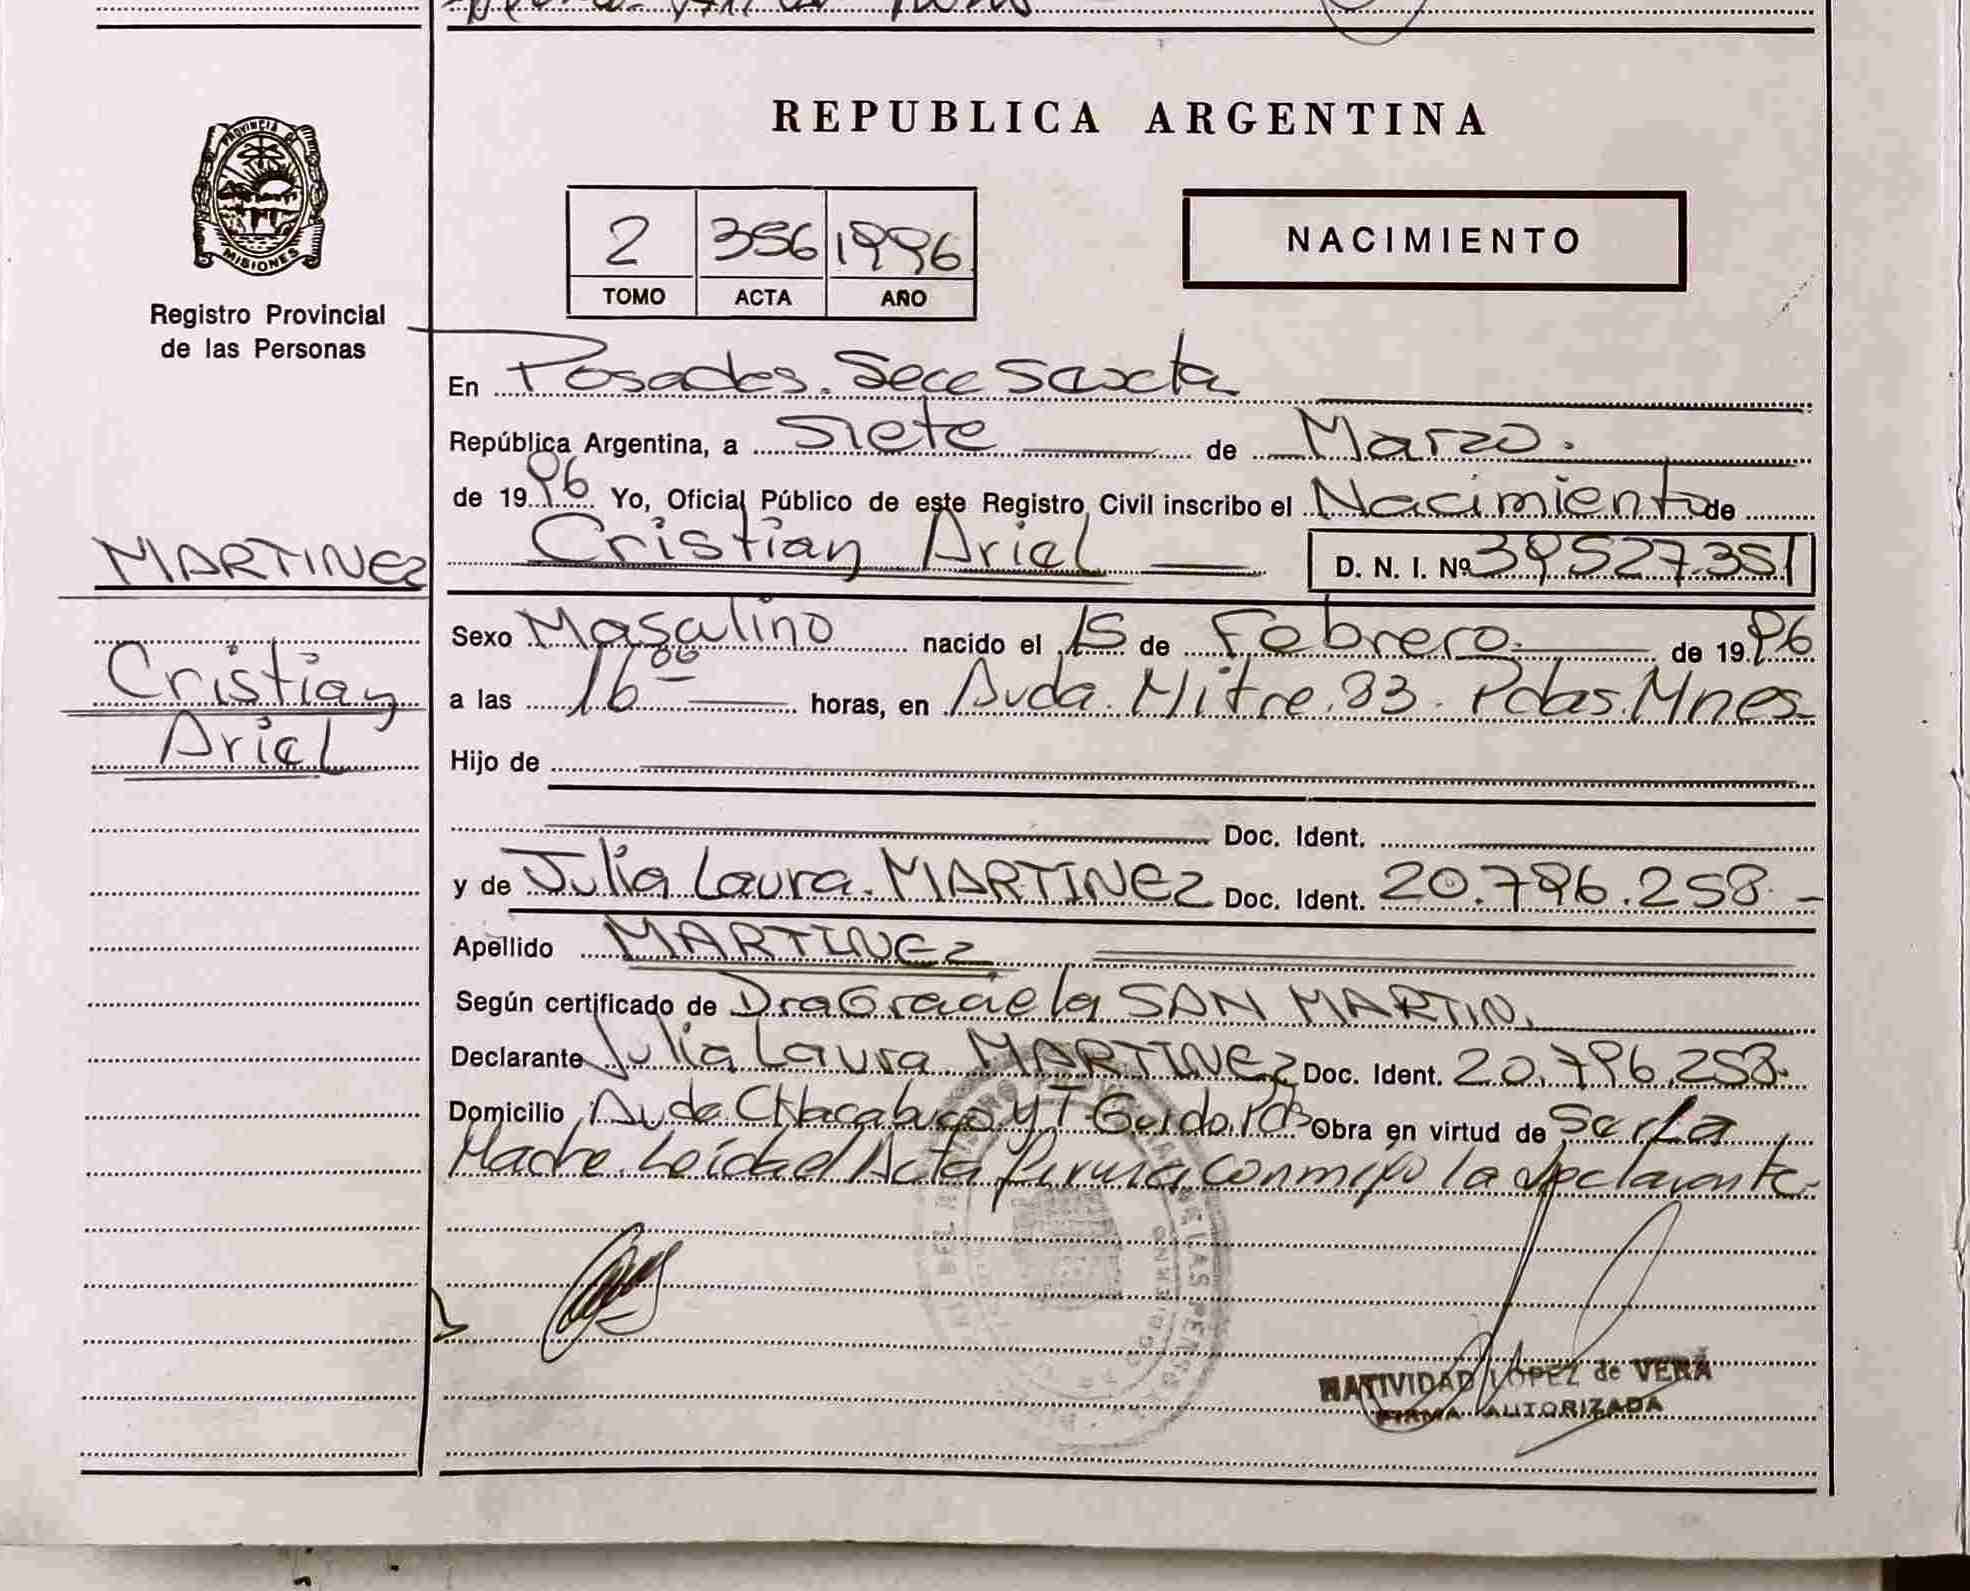 REPUBLICA ARGENTINA
PROVINCIA DE
MISIONES
Registro Provincial
de las Personas
2 356 1996
TOMO ACTA AÑO
NACIMIENTO
En Posadas. Secc Sexta
República Argentina, a Siete de Marzo.
de 1996 Yo, Oficial Público de este Registro Civil inscribo el Nacimiento de
Cristian Ariel D. N. I. Nº 39527.351
MARTINEZ
Cristian
Ariel
Sexo Masculino nacido el 15 de Febrero de 1996
a las 16 00 horas, en Avda. Mitre. 83. Pdas. Mnes
Hijo de
Doc. Ident.
y de Julia Laura. MARTINEZ Doc. Ident. 20.796.258
Apellido MARTINEZ
Según certificado de Dra Graciela SAN MARTIN.
Declarante Julia Laura MARTINEZ Doc. Ident. 20.796.258.
Domicilio Avda CHacabuco y T. Guido. Pdas Obra en virtud de Ser La
Madre. Leída el Acta firma conmigo la declarante.
NATIVIDAD LOPEZ de VERA
FIRMA AUTORIZADA